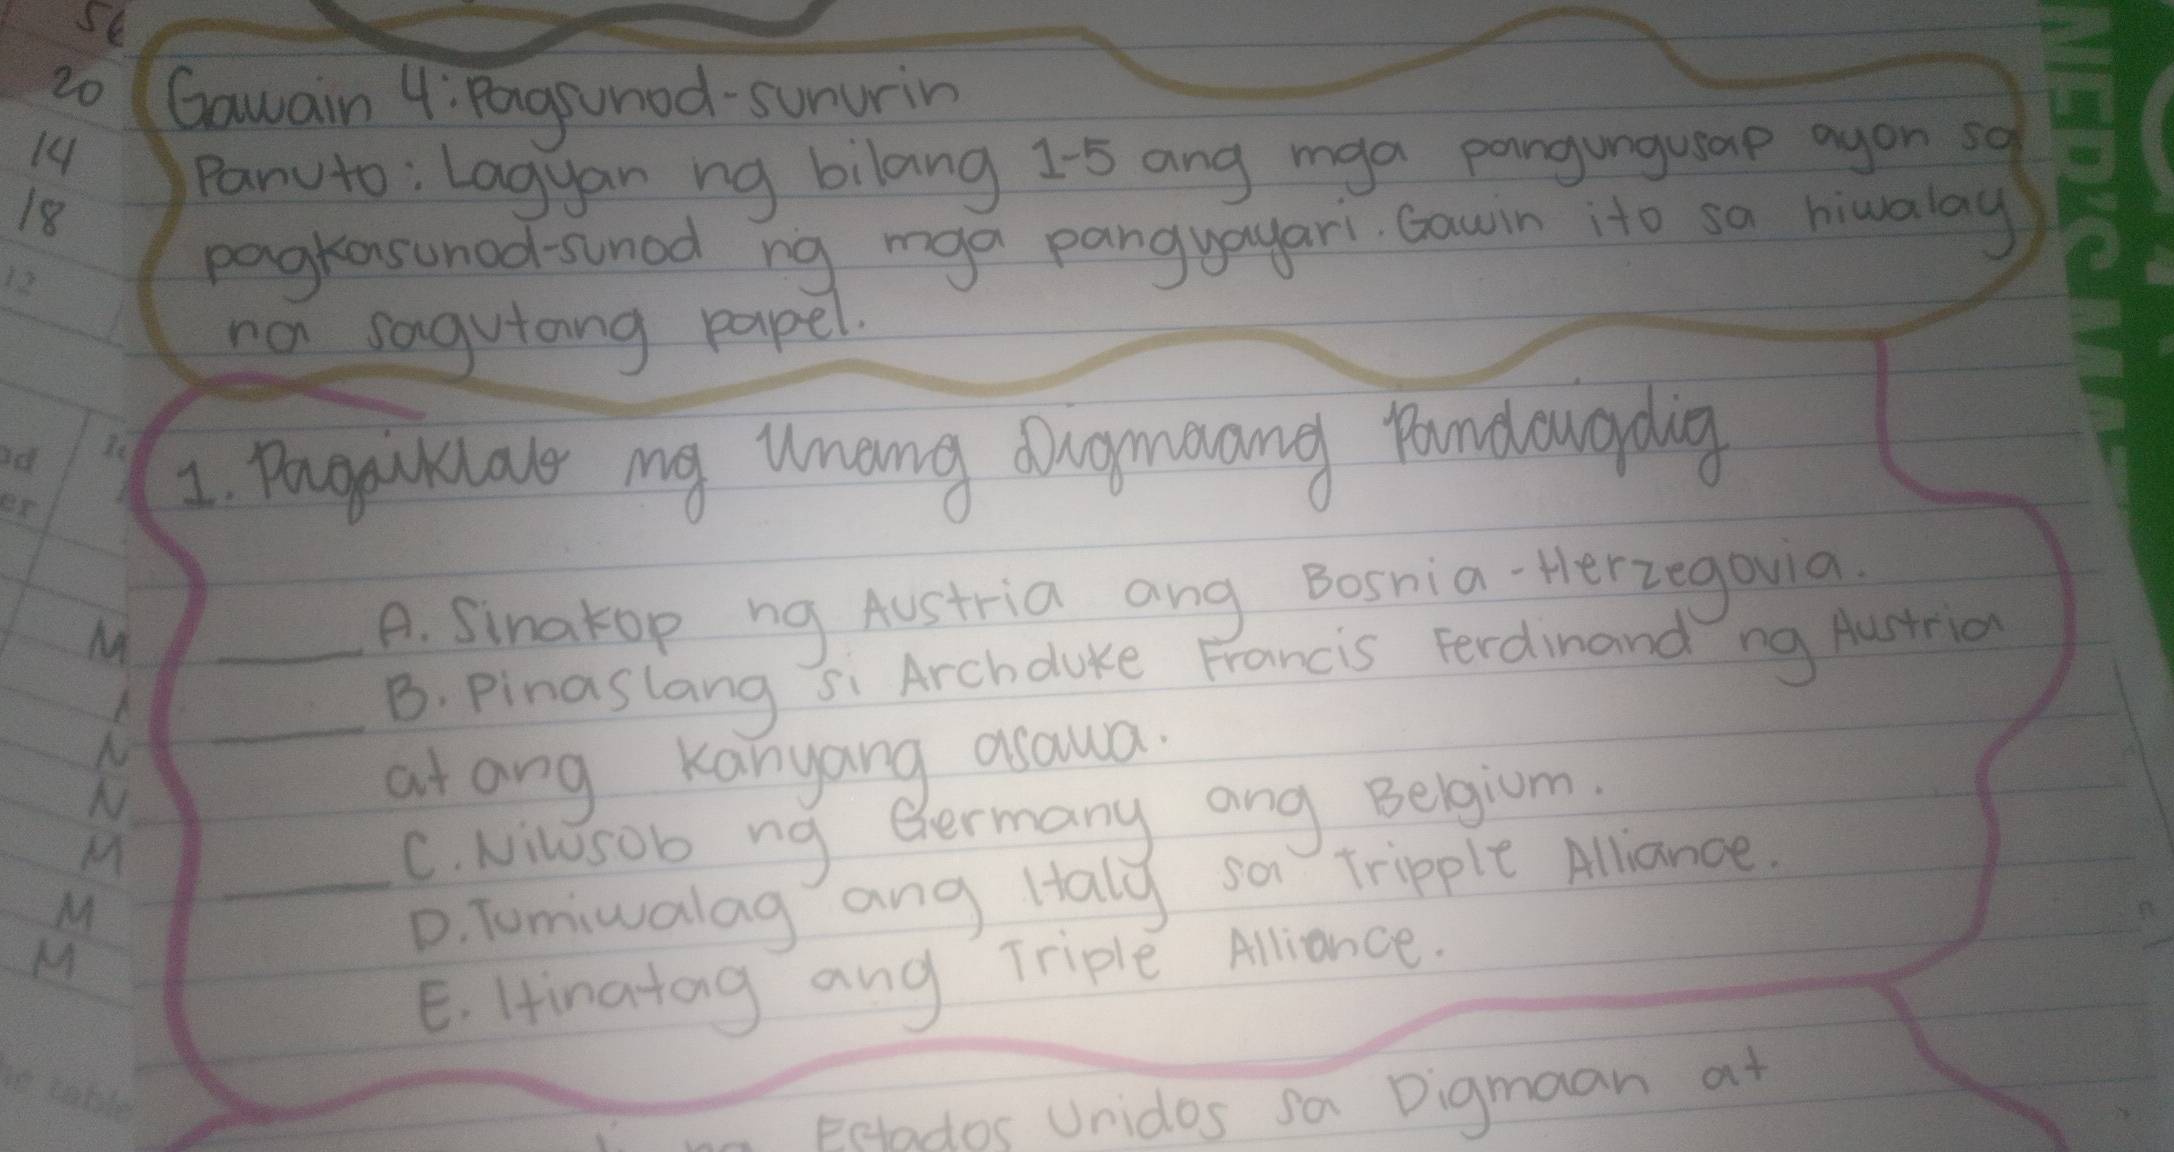 20
14
18
12
Gawain 4: Pagsunod-sunurin
Panuto: Lagyan ng bilang 1-5 ang mga pangungusap ayon sa
pagkasunod-sunod ng mga pangyayari. Gawin ito sa hiwalay
na sagutang papel.
1. Pagsiklab ng Unang Digmaang Pandaigdig
____ A. Sinakop ng Austria ang Bosnia-Herzegovia.
____ B. Pinaslang si Archduke Francis Ferdinand ng Austria
at ang kanyang asawa.
____ C. Nilusob ng Germany ang Belgium.
D. Tumiwalag ang Italy sa Tripple Alliance.
E. Itinatag ang Triple Alliance.
Estados Unidos sa Digmaan at
M
N
N
M
M
M